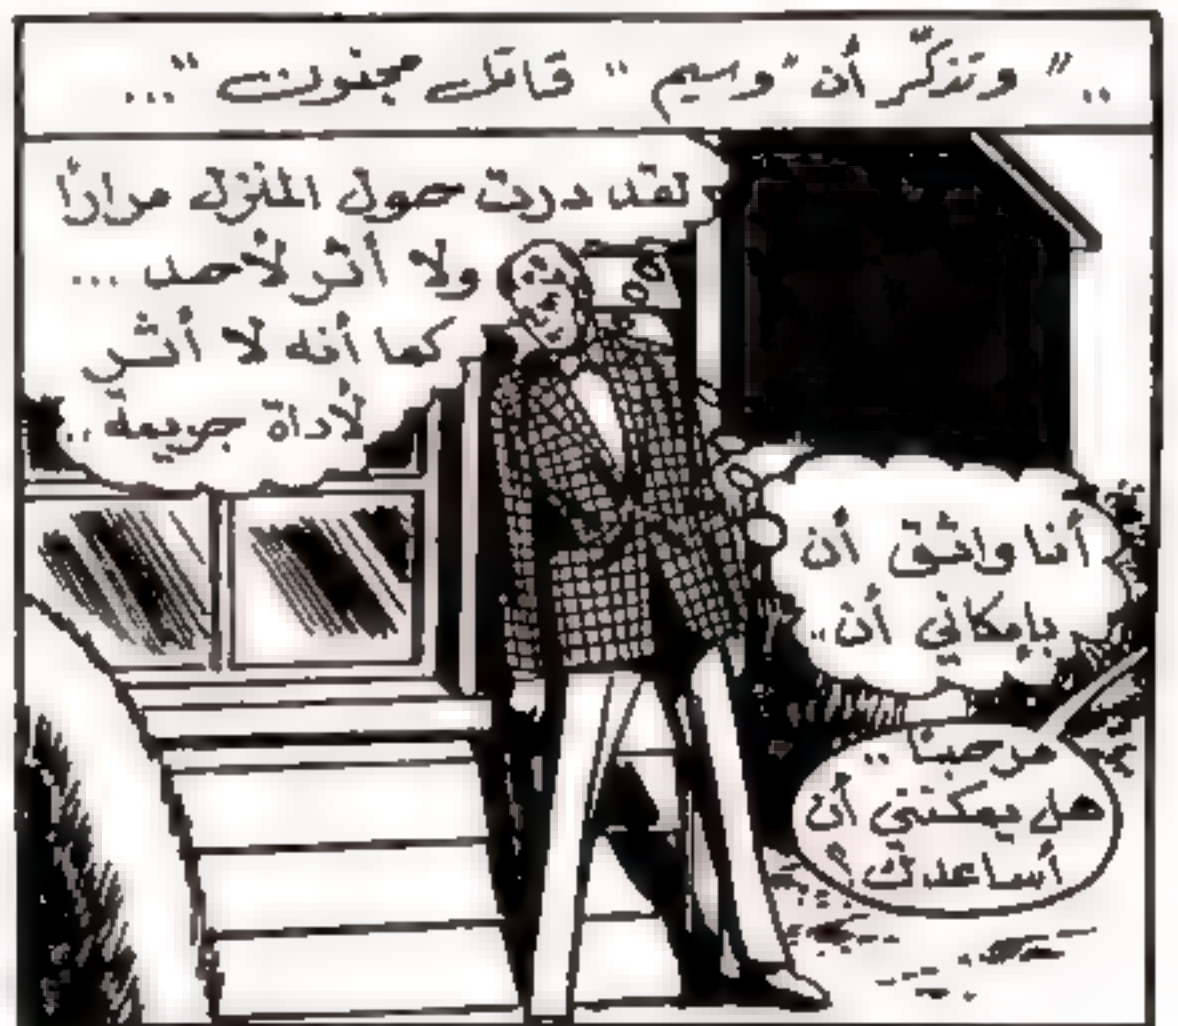 .." وتذكّر أن "وسيم" قاتل مجنون"...
لقد درت حول المنزل مرارًا
ولا أثر لأحد ...
كما أنه لا أثر
لأداة جريمة ..
أنا واثق أن
بإمكاني أن ..
مرحبًا ..
هل يمكنني أن
أساعدك ؟